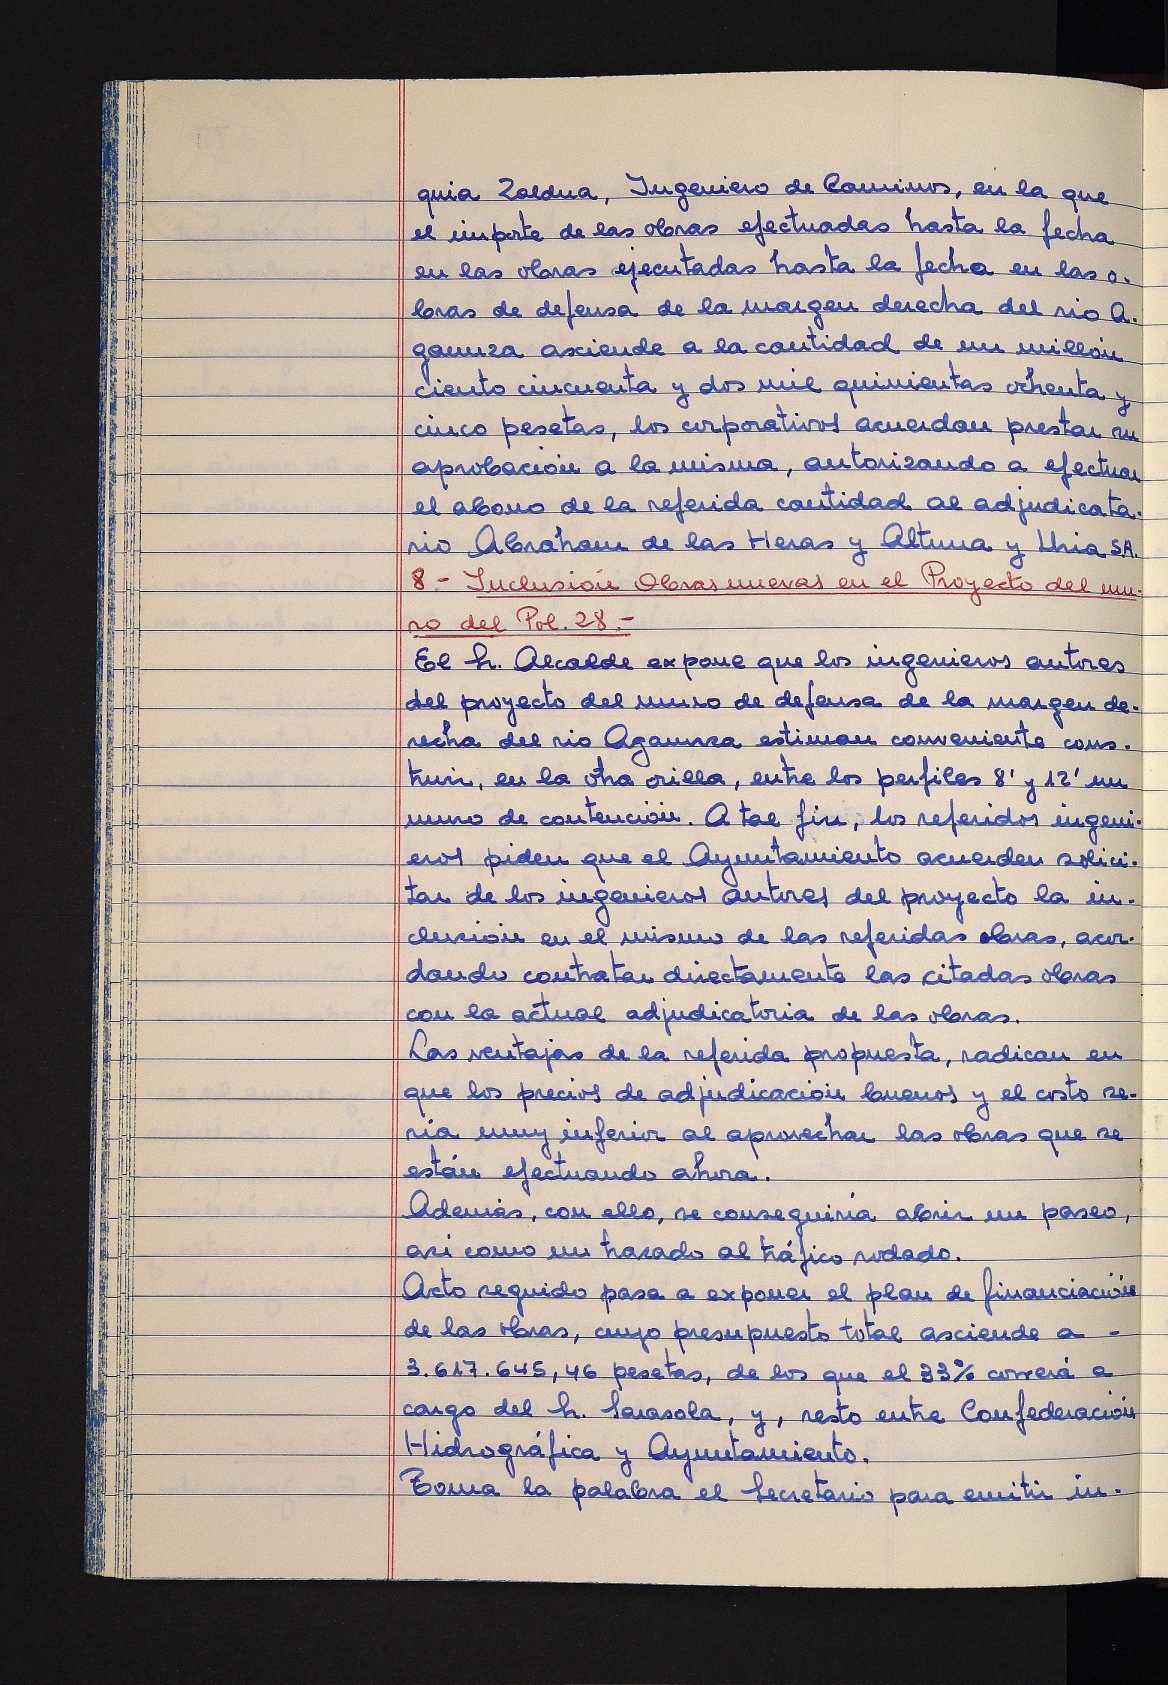 quia Zaldua, Ingeniero de Caminos, en la que
el importe de las obras efectuadas hasta la fecha
en las obras ejecutadas hasta la fecha en las o-
bras de defensa de la margen derecha del rio A-
gaunza asciende a la cantidad de un millón
ciento cincuenta y dos mil quinientas ochenta y
cinco pesetas, los corporativos acuerdan prestar su
aprobación a la misma, autorizando a efectuar
el abono de la referida cantidad al adjudicata-
rio Abraham de las Heras y Altuna y Uria S.A.
8.- Inclusión Obras nuevas en el Proyecto del mu-
ro del Pol. 28.-
El Sr. Alcalde expone que los ingenieros autores
del proyecto del muro de defensa de la margen de-
recha del rio Agaunza estiman conveniente cons-
truir, en la otra orilla, entre los perfiles 8' y 12' un
muro de contención. A tal fin, los referidos ingeni-
eros piden que el Ayuntamiento acuerden solici-
tar de los ingenieros autores del proyecto la in-
clusión en el mismo de las referidas obras, acor-
dando contratar directamente las citadas obras
con la actual adjudicatoria de las obras.
Las ventajas de la referida propuesta, radican en
que los precios de adjudicación buenos y el costo se-
ria muy inferior al aprovechar las obras que se
están efectuando ahora.
Además, con ello, se conseguiría abrir un paseo,
asi como un trazado al tráfico rodado.
Acto seguido pasa a exponer el plan de financiación
de las obras, cuyo presupuesto total asciende a -
3.617.645,46 pesetas, de los que el 33% correrá a
cargo del Sr. Sarasola, y, resto entre Confederación
Hidrográfica y Ayuntamiento.
Toma la palabra el Secretario para emitir in-